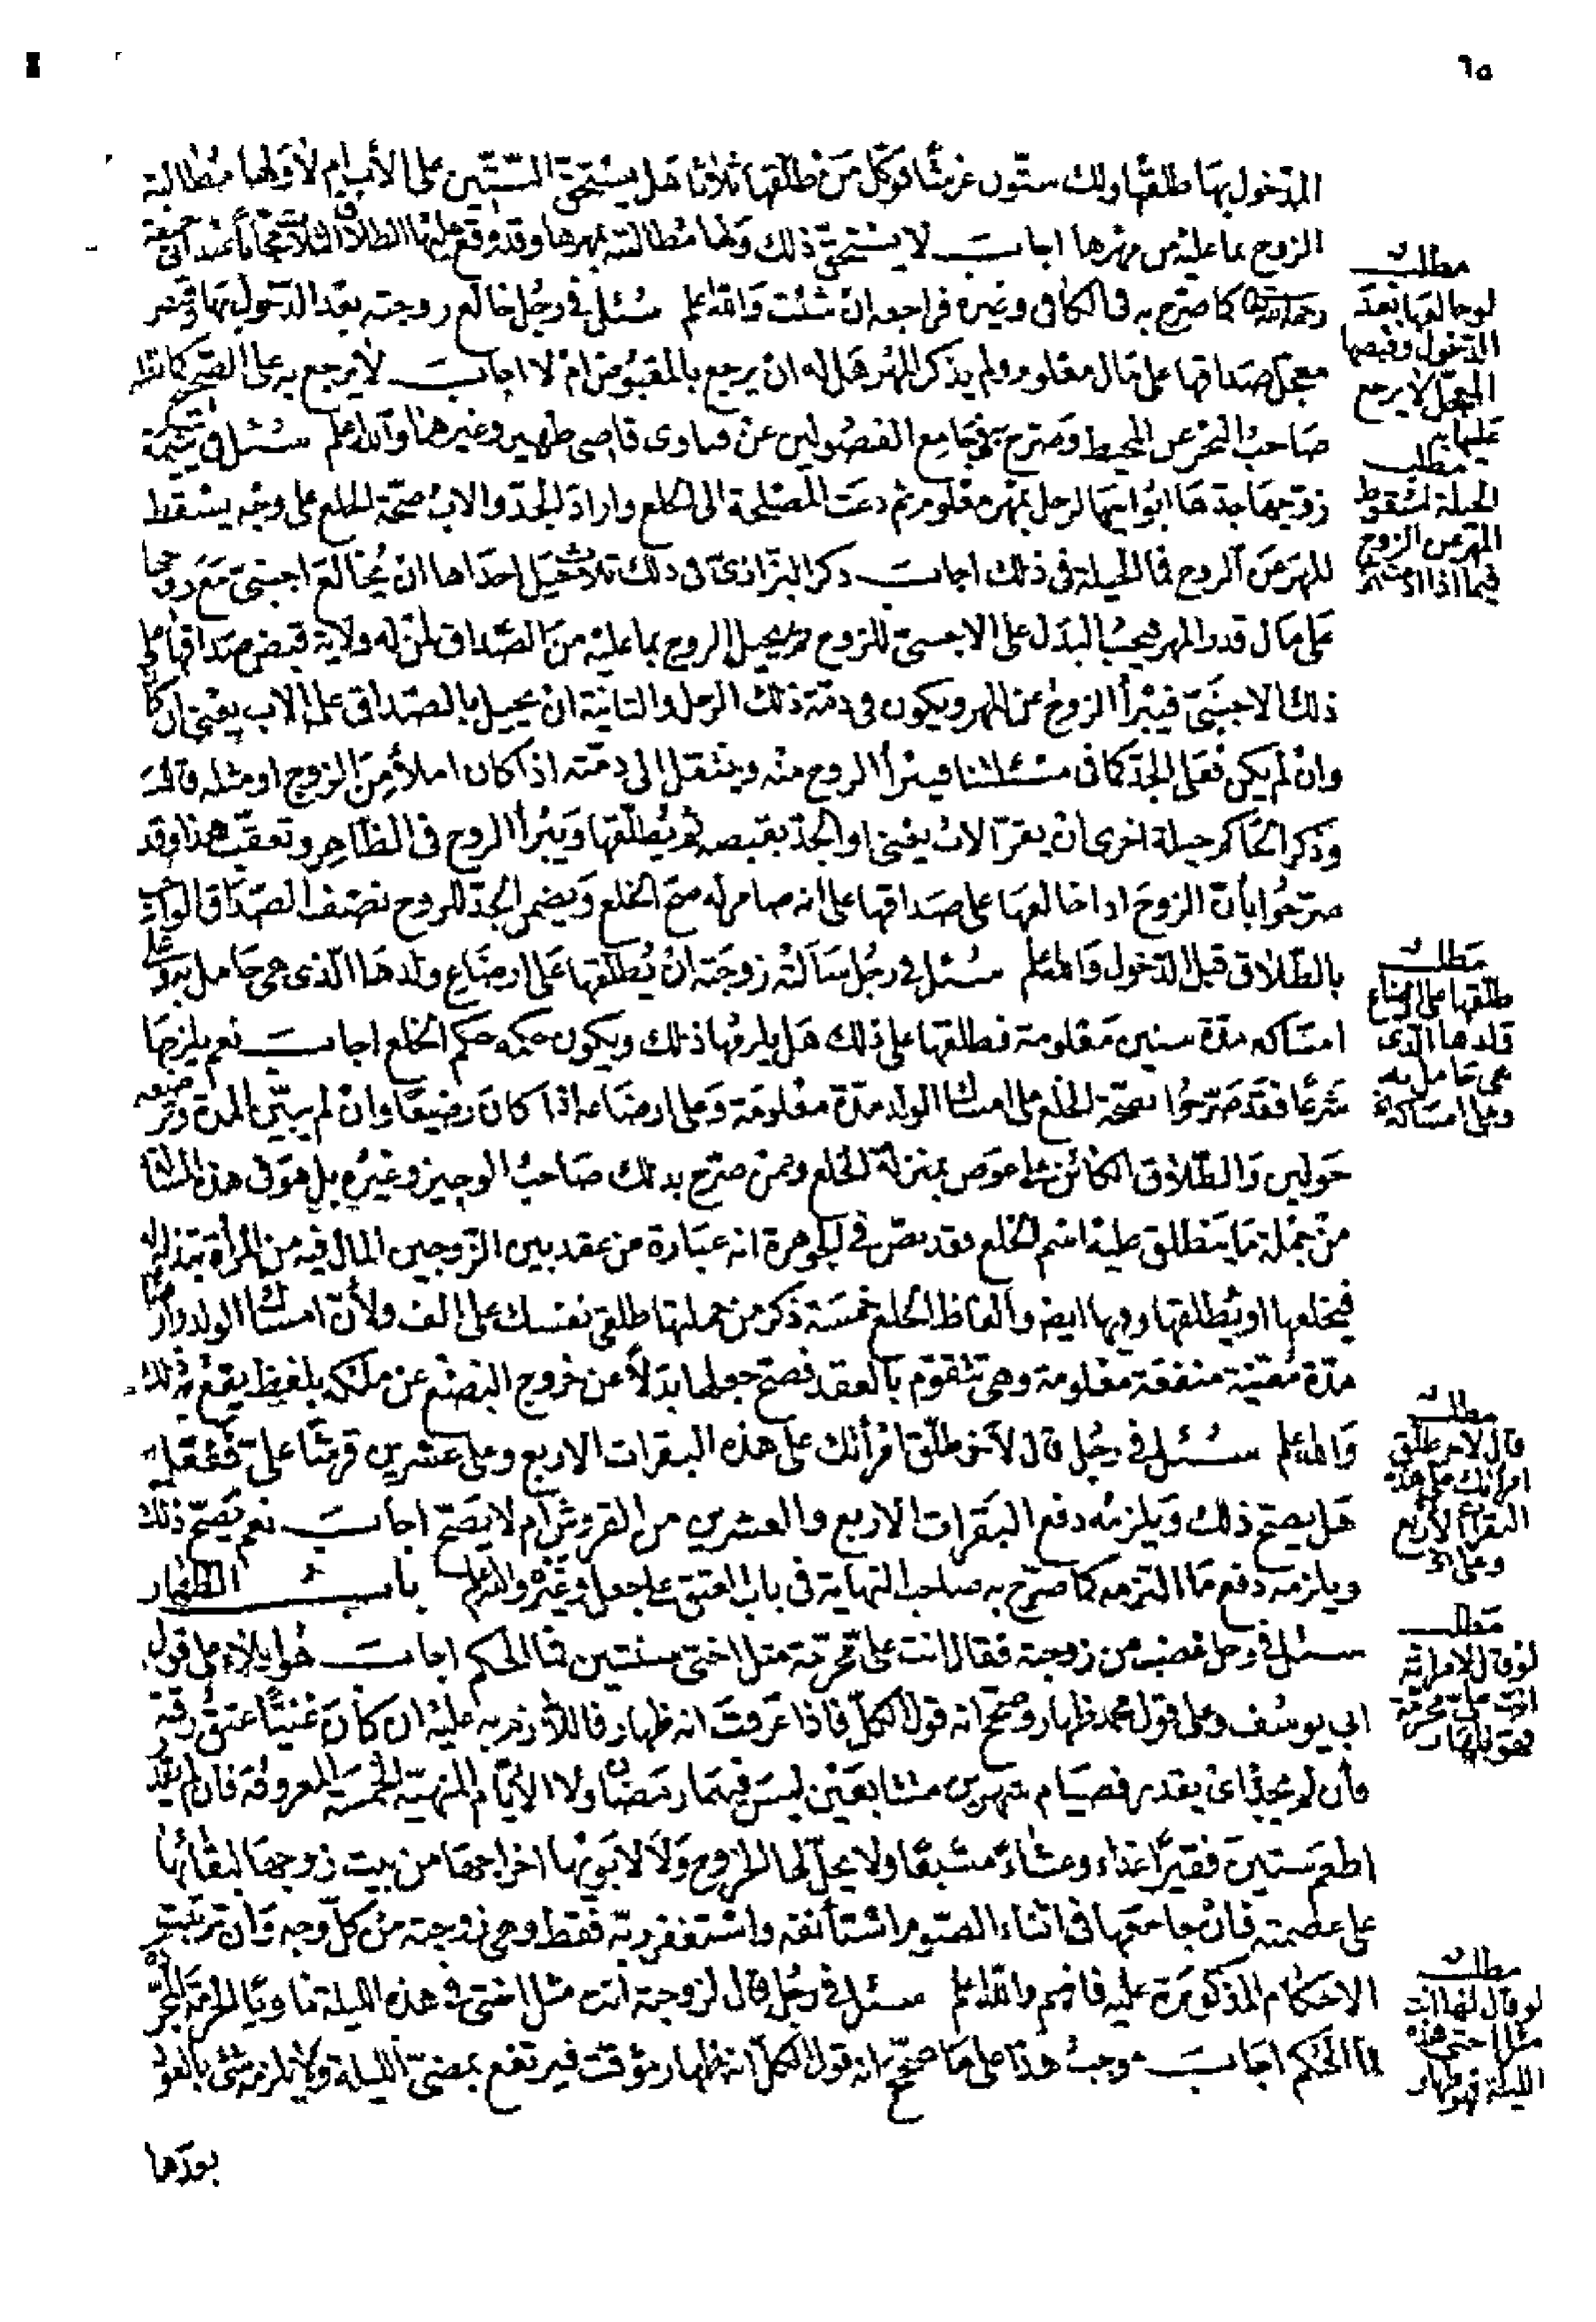 ٦٥
المدخول بها طلقها ولك ستون غرشا فوكل من طلقها ثلاثا هل يستحق الستين على الأب ام لا ولها مطالبة
الزوج بما عليه من مهرها اجاب لا يستحق ذلك ولها مطالبته بمهرها وقد وقع عليها الطلاق الثلاث مجانا عند ابى حنيفة
رحمه الله كما صرح به فى الكافى وغيره فراجعه ان شئت والله اعلم سئل فى رجل خالع زوجته بعد الدخول بها وقبض
معجل صداقها على مال معلوم ولم يذكر المهر هل له ان يرجع بالمقبوض ام لا اجاب لا يرجع به على الصحيح كما نقله
صاحب البحر عن المحيط وصرح به فى جامع الفصولين عن فتاوى قاضى ظهير وغيرهما والله اعلم سئل فى يتيمة
زوجها جدها ابو ابيها لرجل بمهر معلوم ثم دعت المصلحة الى الخلع واراد الجد والاب صحة الخلع على وجه يسقط
المهر عن الزوج فما الحيلة فى ذلك اجاب ذكر البزازى فى ذلك ثلاث حيل احداها ان يخالع اجنبى مع زوجها
على مال قدر المهر فيجب البدل على الاجنبى للزوج ثم يحيل الزوج بما عليه من الصداق لمن له ولاية قبض صداقها على
ذلك الاجنبى فيبرأ الزوج عن المهر ويكون فى ذمة ذلك الرجل والثانية ان يحيل بالصداق على الاب يعنى ان كان
وان لم يكن فعلى الجد كما فى مسئلتنا فيبرأ الزوج منه وينتقل الى ذمته اذا كان املأ من الزوج او مثله قالت
وذكر الحاكم حيلة اخرى ان يقر الاب يعنى او الجد بقبضه ثم يطلقها ويبرأ الزوج فى الظاهر وتعقب هذا وقد
صرحوا بأن الزوج اذا خالعها على صداقها على انه ضامن له صح الخلع ويضمن الجد للزوج نصف الصداق الواجب
بالطلاق قبل الدخول والله اعلم سئل فى رجل سألته زوجته ان يطلقها على ارضاع ولدها الذى هى حامل به وعلى
امساكه مدة سنين معلومة فطلقها على ذلك هل يلزمها ذلك ويكون حكمه حكم الخلع اجاب نعم يلزمها
شرعا فقد صرحوا بصحة الخلع على امساك الولد مدة معلومة وعلى ارضاعه اذا كان رضيعا وان لم يبين المدة وترضعه
حولين والطلاق الكائن على عوض بمنزلة الخلع وممن صرح بذلك صاحب الوجيز وغيره بل هو فى هذه المسئلة
من جملة ما ينطلق عليه اسم الخلع فقد نص فى الجوهرة انه عبارة من عقد بين الزوجين المال فيه من المرأة تبذله
فيخلعها او يطلقها وفيها ايضا والفاظ الخلع خمسة ذكر من جملتها طلقى نفسك على الف ولأن امساك الولد وارضاعه
مدة معينة منفعة معلومة وهى تتقوم بالعقد فصح جعلها بدلا عن خروج البضع عن ملكه بلفظ يقع به ذلك
والله اعلم سئل فى رجل قال لآخر طلق امرأتك على هذه البقرات الاربع وعلى عشرين قرشا على ففعل
هل يصح ذلك ويلزمه دفع البقرات الاربع والعشرين من القروش ام لا يصح اجاب نعم يصح ذلك
ويلزمه دفع ما التزمه كما صرح به صاحب النهاية فى باب العتق على جعل وغيره والله اعلم باب الظهار
سئل فى رجل غضب من زوجته فقال انت على محرمة مثل اختى سنتين فما الحكم اجاب هو ايلاء على قول
ابى يوسف وعلى قول محمد ظهار وصحح انه قول الكل فاذا عرفت انه ظهار فاللازم به عليه ان كان غنيا عتق رقبة
وان لم يجد اى يقدر فصيام شهرين متتابعين ليس فيهما رمضان ولا الايام المنهية الخمسة المعروفة فان لم يقدر
اطعم ستين فقيرا غداء وعشاء مشبعا ولا يحل لها الخروج ولا لابويها اخراجها من بيت زوجها لبقائها
على عصمته فان جامعها فى اثناء الصوم استأنفه واستغفر ربه فقط وهى زوجته من كل وجه وان ترتبت
الاحكام المذكورة عليه فافهم والله اعلم سئل فى رجل قال لزوجته انت مثل اختى فى هذه الليلة ناويا الحرمة
ما الحكم اجاب موجب هذا على ما صحح انه قول الكل انه ظهار مؤقت فيرتفع بمضى الليلة ولا يلزمه شئ بالعود
بعدها
مطلب
لو خالعها بعد
الدخول وقبضها
المعجل لا يرجع
عليها به
مطلب
الحيلة لسقوط
المهر عن الزوج
فيما اذا
مطلب
طلقها على ارضاع
ولدها الذى
هى حامل به
وعلى امساكه
مطلب
قال لآخر طلق
امرأتك على هذه
البقرات الأربع
وعلى
مطلب
لو قال لامرأته
انت على محرمة
فهو ظهار
مطلب
لو قال لها انت
مثل اختى هذه
الليلة فهو ظهار